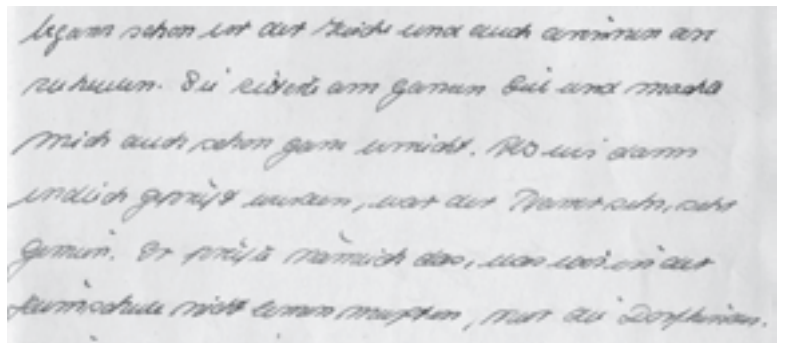 begann schon vor der Kirche und auch drinnen an
zu heulen. Sie zitterte am ganzen Leib und machte
mich auch schon ganz verrückt. Als wir dann
endlich geprüft wurden, war der Pfarrer sehr, sehr
gemein. Er prüfte nämlich das, was wir in der
Heimschule nicht lernen mußten, nur die Dorfkinder.